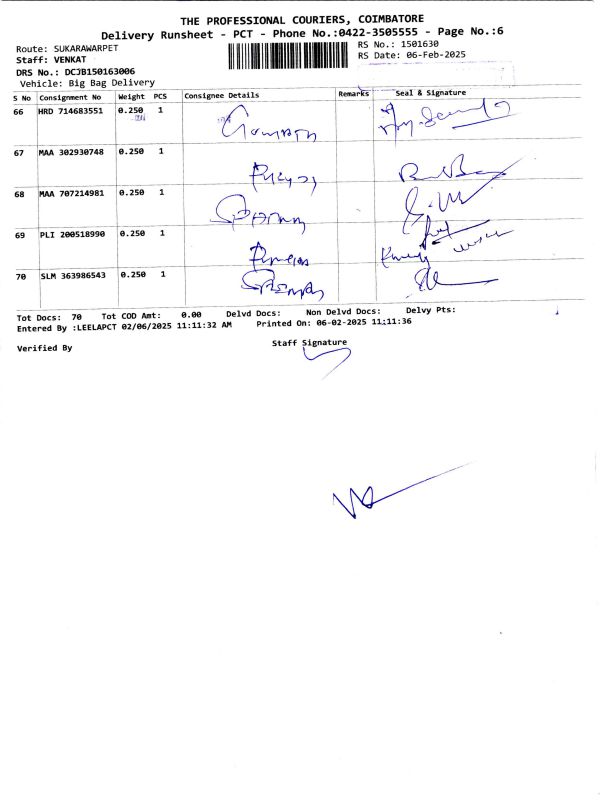 THE PROFESSIONAL COURIERS, COIMBATORE
Delivery Runsheet - PCT - Phone No.:0422-3505555 - Page No.:6
Route: SUKARAWARPET
RS No.: 1501630
Staff: VENKAT
RS Date: 06-Feb-2025
DRS No.: DCJB150163006
Vehicle: Big Bag Delivery
S No Consignment No Weight PCS Consignee Details Remarks Seal & Signature
66 HRD 714683551 0.250 1
67 MAA 302930748 0.250 1
68 MAA 707214981 0.250 1
69 PLI 200518990 0.250 1
70 SLM 363986543 0.250 1
Tot Docs: 70 Tot COD Amt: 0.00 Delvd Docs: Non Delvd Docs: Delvy Pts:
Entered By :LEELAPCT 02/06/2025 11:11:32 AM Printed On: 06-02-2025 11:11:36
Verified By Staff Signature